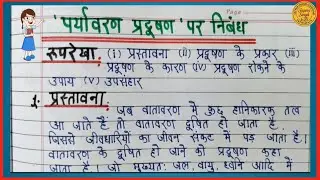 'पर्यावरण प्रदूषण' पर निबंध
रूपरेखा: (i) प्रस्तावना (ii) प्रदूषण के प्रकार (iii)
प्रदूषण के कारण (iv) प्रदूषण रोकने के
उपाय (v) उपसंहार
1. प्रस्तावना: जब वातावरण में कुछ हानिकारक तत्व
आ जाते हैं तो वातावरण दूषित हो जाता है
जिससे जीवधारियों का जीवन संकट में पड़ जाता है।
वातावरण के दूषित हो जाने को प्रदूषण कहा
जाता है। जो मुख्यतः जल, वायु, ध्वनि आदि में